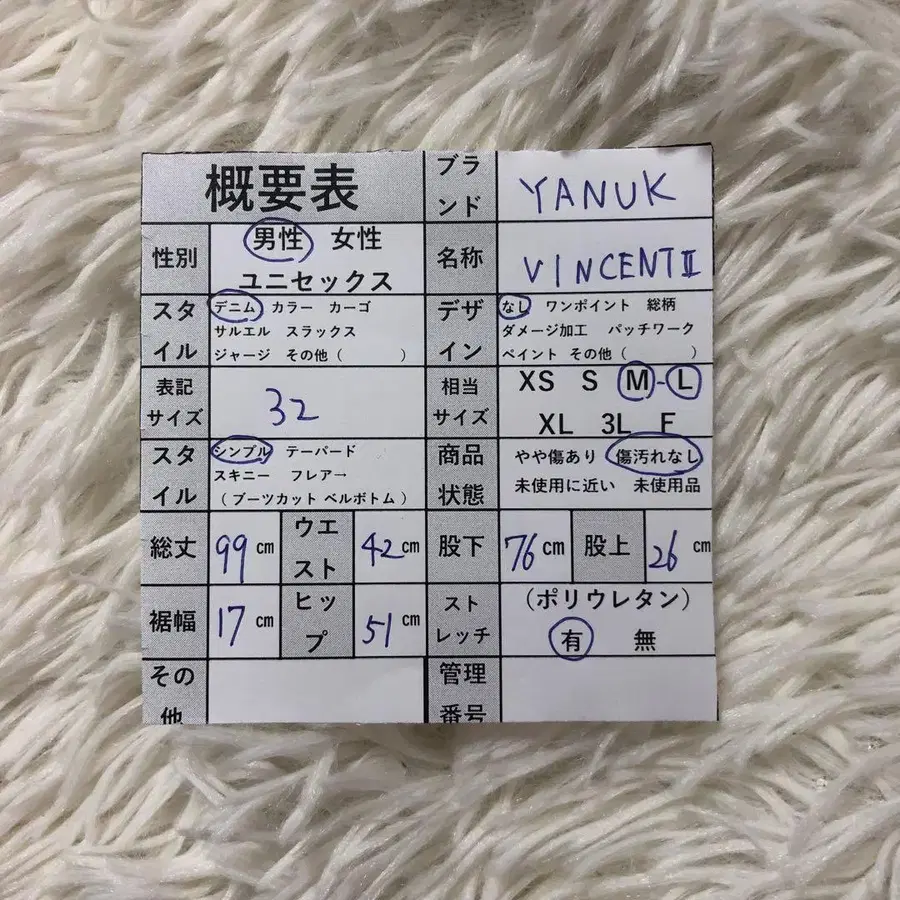 概要表
ブランド
YANUK
性別
男性 女性
ユニセックス
名称
VINCENTⅡ
スタイル
デニム カラー カーゴ
サルエル スラックス
ジャージ その他( )
デザイン
なし ワンポイント 総柄
ダメージ加工 パッチワーク
ペイント その他( )
表記
サイズ
32
相当
サイズ
XS S M-L
XL 3L F
スタイル
シンプル テーパード
スキニー フレアー
(ブーツカット ベルボトム)
商品
状態
やや傷あり 傷汚れなし
未使用に近い 未使用品
総丈
99 cm
ウエスト
42 cm
股下
76 cm
股上
26 cm
裾幅
17 cm
ヒップ
51 cm
ストレッチ
(ポリウレタン)
有 無
その他
管理
番号